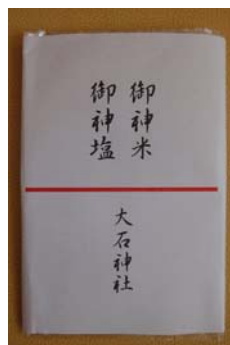 御神米
御神塩
大石神社